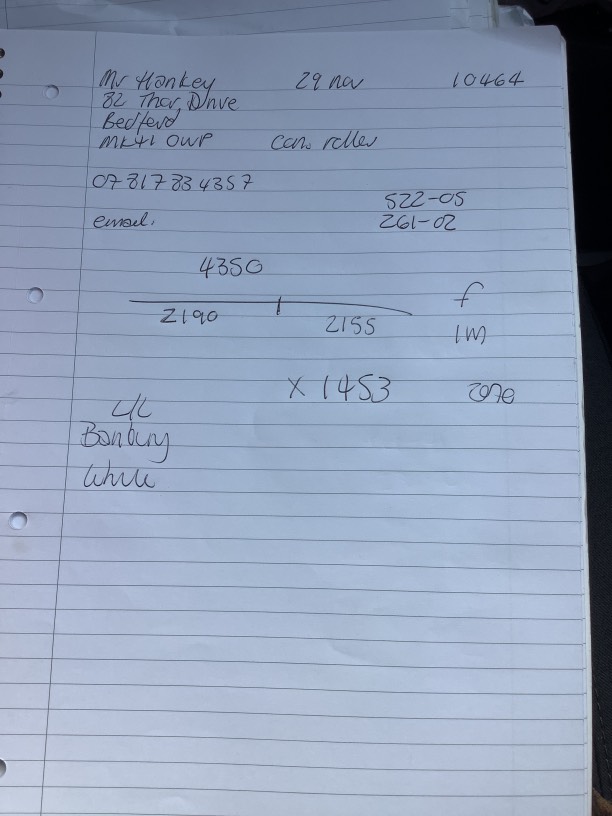 Mr Hankey 29 nov 10464
82 Thor Drive
Bedford
MK41 0WP Can. roller
07817834357
522-05
email. 261-02
4350
2190 2155 f
1M
x 1453 rope
L/L
Banbury
White